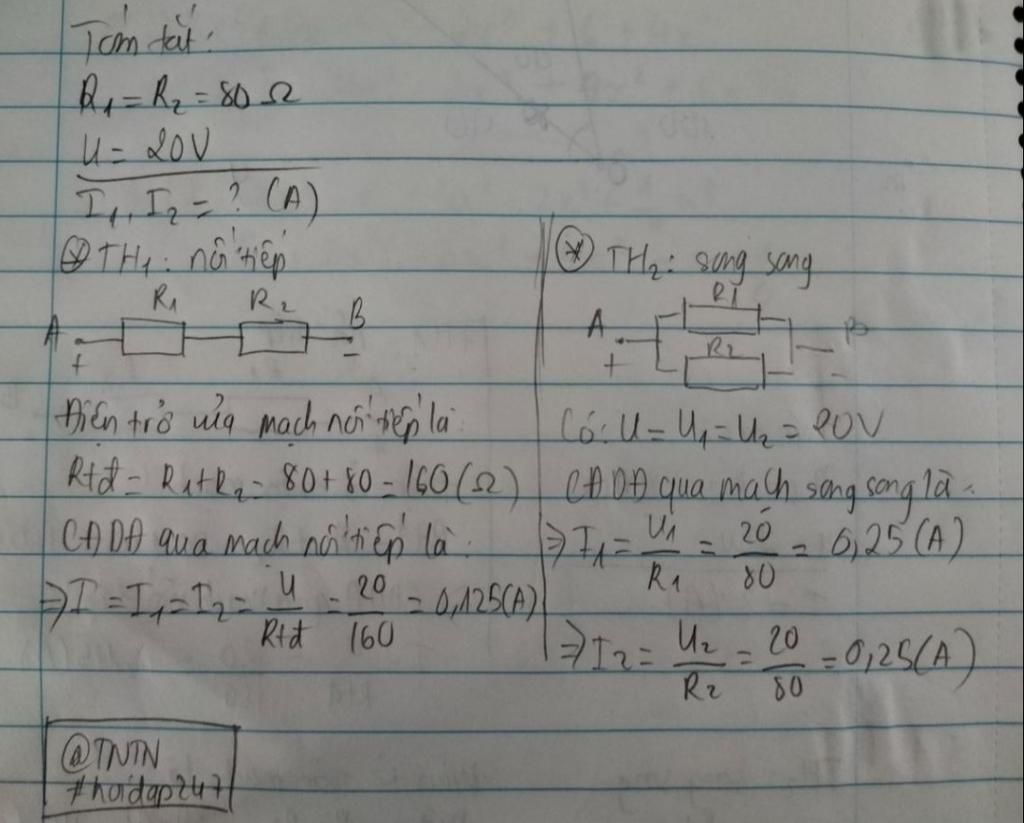 Tóm tắt:
R₁ = R₂ = 80 Ω
U = 20V
I₁, I₂ = ? (A)
⊛ TH₁: nối tiếp
R₁ R₂
A B
+ -
Điện trở của mạch nối tiếp là:
Rtđ = R₁+R₂ = 80+80 = 160 (Ω)
CĐDĐ qua mạch nối tiếp là:
⇒ I = I₁ = I₂ = U/Rtđ = 20/160 = 0,125(A)
⊛ TH₂: song song
R1
A B
R2
+ -
Có: U = U₁ = U₂ = 20V
CĐDĐ qua mạch song song là:
⇒ I₁ = U₁/R₁ = 20/80 = 0,25(A)
⇒ I₂ = U₂/R₂ = 20/80 = 0,25(A)
@TNTN
#hoidap247